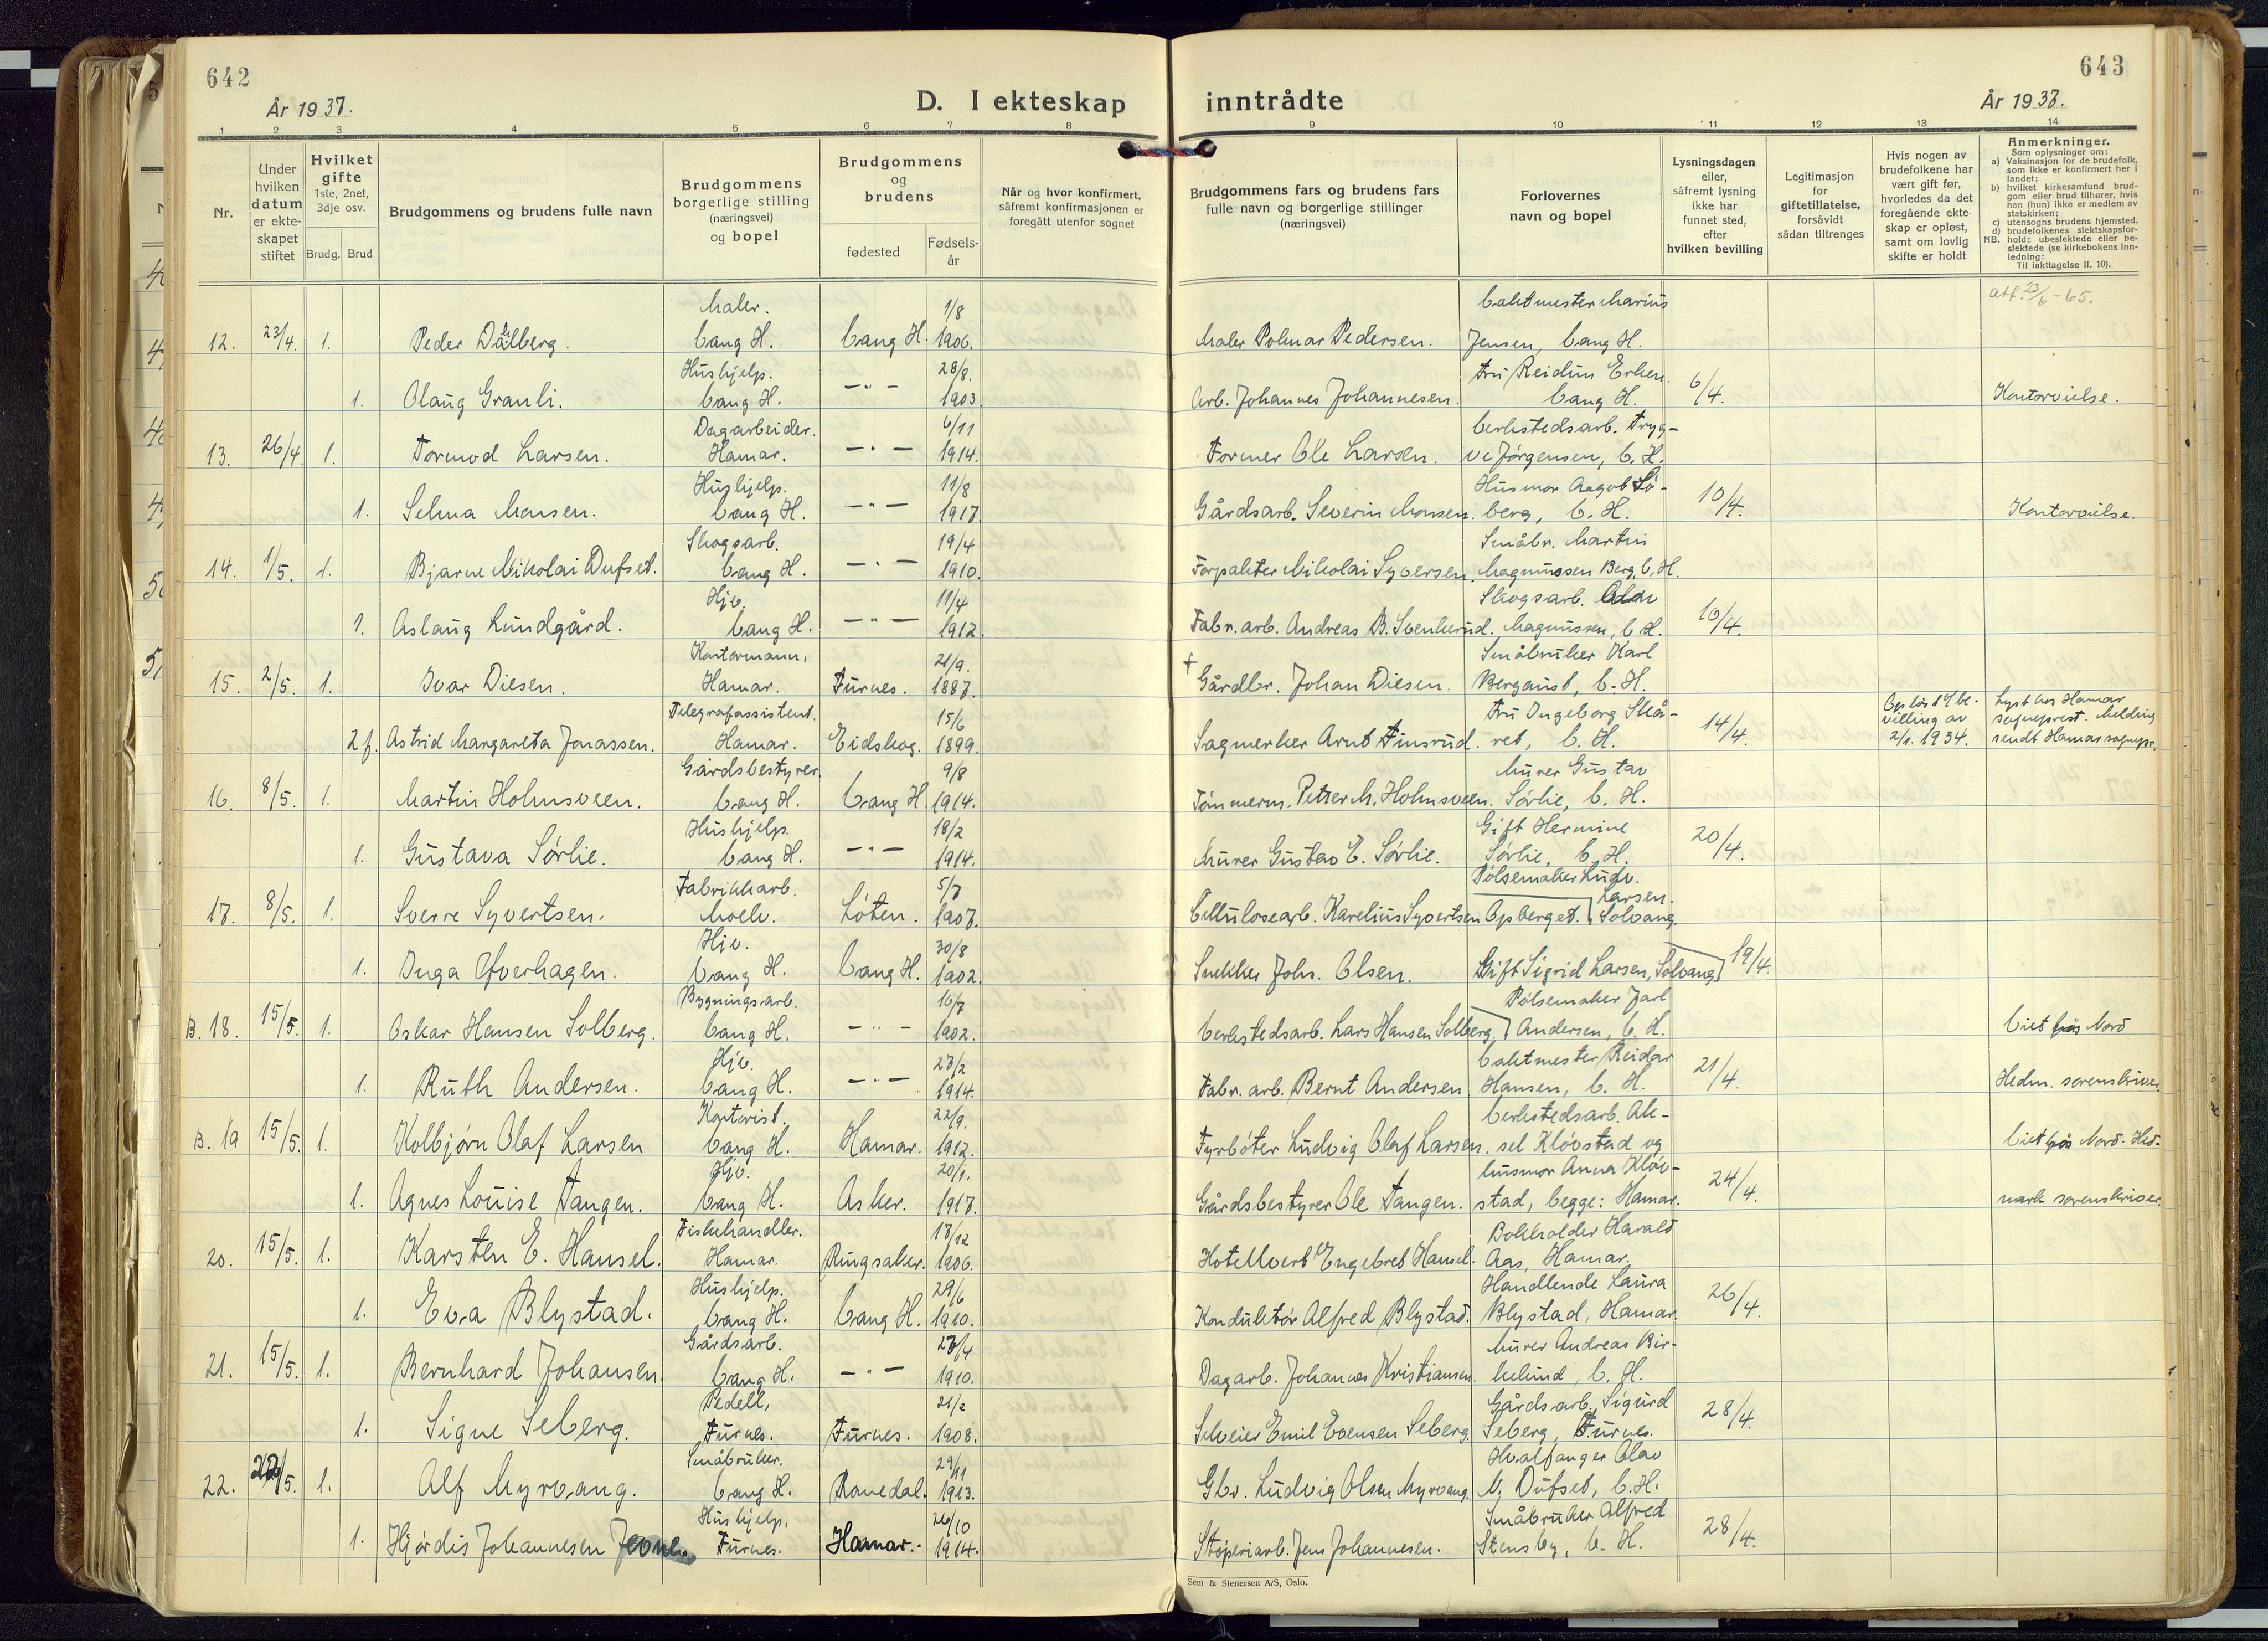 642
År 1937.
D. I ekteskap
inntrådte
643
År 1937.
1 2 3 4 5 6 7 8 9 10 11 12 13 14
Nr.
Under hvilken datum er ekteskapet stiftet
Hvilket gifte 1ste, 2net, 3dje osv.
Brudg. Brud
Brudgommens og brudens fulle navn
Brudgommens borgerlige stilling (næringsvei) og bopel
Brudgommens og brudens
fødested
Fødselsår
Når og hvor konfirmert, såfremt konfirmasjonen er foregått utenfor sognet
Brudgommens fars og brudens fars fulle navn og borgerlige stillinger (næringsvei)
Forlovernes navn og bopel
Lysningsdagen eller, såfremt lysning ikke har funnet sted, efter hvilken bevilling
Legitimasjon for giftetillatelse, forsåvidt sådan tiltrenges
Hvis nogen av brudefolkene har vært gift før, hvorledes da det foregående ekteskap er opløst, samt om lovlig skifte er holdt
Anmerkninger.
Som oplysninger om:
a) Vaksinasjon for de brudefolk, som ikke er konfirmert her i landet;
b) hvilket kirkesamfund brudgom eller brud tilhører, hvis han (hun) ikke er medlem av statskirken;
c) utensogns brudens hjemsted.
d) brudefolkenes slektskapsforhold: ubeslektede eller beslektede (se kirkebokens innledning:
NB. Til iakttagelse II. 10).
12. 23/4. 1. Peder Dahlberg. Maler. Vang H. Vang H. 1/8 1906. Maler Polmar Pedersen. Vaktmester Marius Jensen, Vang H. att. 23/6-65.
1. Olaug Grauli. Hushjelp. Vang H. —"— 28/8. 1903. Arb. Johannes Johannesen. Fru Reidun Erken. Vang H. 6/4. Kontorvielse.
13. 26/4. 1. Tormod Larsen. Dagarbeider. Hamar. —"— 6/11 1914. Former Ole Larsen. Verkstedsarb. Trygve Jørgensen, V. H.
1. Selma Monsen. Hushjelp. Vang H. —"— 11/8 1917. Gårdsarb. Severin Monsen. Husmor Aagot Løberg, V. H. 10/4. Kontorvielse.
14. 1/5. 1. Bjarne Nikolai Dufset. Skogsarb. Vang H. —"— 19/4 1910. Forpakter Nikolai Syversen. Småbr. Martin Magnussen Berg, V. H.
1. Aslaug Lundgård. Hjv. Vang H. —"— 11/4 1912. Fabr. arb. Andreas B. Svenkerud. Skogsarb. Olav Magnussen, V. H. 16/4.
15. 2/5. 1. Ivar Diesen. Kontormann, Hamar. Furnes. 21/9. 1887. † Gårdbr. Johan Diesen. Småbruker Karl Bergaust, V. H.
2 f. Astrid Margareta Jonassen. Telegrafassistent. Hamar. Eidskog. 15/6 1899. Sagmerker Arnt Finsrud. Fru Ingeborg Skåret, V. H. 14/4. Opløst v/ bevilling av 2/1. 1934. Lyst hos Hamar sogneprest. Melding sendt Hamar sognepr.
16. 8/5. 1. Martin Holmsveen. Gårdsbestyrer. Vang H. Vang H. 9/8 1914. Tømmerm. Petter M. Holmsveen. Murer Gustav Sørlie, V. H.
1. Gustava Sørlie. Hushjelp. Vang H. —"— 18/2 1914. Murer Gustav E. Sørlie. Gift Hermine Sørlie, V. H. 20/4.
17. 8/5. 1. Sverre Syvertsen. Fabrikkarb. Moelv. Løten. 5/7 1907. Cellulosearb. Karelius Syvertsen Opberget. Pølsemaker Ludv. Larsen. Solvang.
1. Inga Øfverhagen. Hjv. Vang H. Vang H. 30/8 1902. Snekker Joh. Olsen. Gift Sigrid Larsen, Solvang. 19/4.
B. 18. 15/5. 1. Oskar Hansen Solberg. Bygningsarb. Vang H. —"— 16/7 1902. Verkstedsarb. Lars Hansen Solberg. Pølsemaker Jarl Andersen, V. H. Viet hos Nord
1. Ruth Andersen. Hjv. Vang H. —"— 27/2 1914. Fabr. arb. Bernt Andersen Vaktmester Reidar Hansen, V. H. 21/4. Hedm. sorenskriver.
B. 19 15/5. 1. Kolbjørn Olaf Larsen Kontorist. Vang H. Hamar. 22/9. 1912. Fyrbøter Ludvig Olaf Larsen. Verkstedsarb. Aksel Kløvstad og Viet hos Nord-Hed-
1. Agnes Louise Tangen. Hjv. Vang H. Asker. 20/1. 1917. Gårdsbestyrer Ole Tangen. husmor Anna Kløvstad, begge: Hamar. 24/4. mark sorenskriver.
20. 15/5. 1. Karsten E. Hansel. Fiskehandler. Hamar. Ringsaker. 17/12 1906. Hotellvert Engebret Hansel. Bokholder Harald Aas, Hamar.
1. Eva Blystad. Hushjelp. Vang H. Vang H. 29/6 1910. Konduktør Alfred Blystad. Handlende Laura Blystad, Hamar. 26/4.
21. 15/5. 1. Bernhard Johansen. Gårdsarb. Vang H. —"— 27/4 1910. Dagarb. Johannes Kristiansen. Murer Andreas Birkelund, V. H.
1. Signe Seberg. Pedell, Furnes. Furnes. 21/2 1908. Selveier Emil Evensen Seberg. Gårdsarb. Sigurd Seberg, Furnes. 28/4.
22. 22/5. 1. Alf Myrvang. Småbruker. Vang H. Romedal. 29/11 1913. Gbr. Ludvig Olsen Myrvang. Hvalfanger Olav N. Dufset, V. H.
1. Hjørdis Johannesen Hushjelp. Furnes. Hamar. 26/10 1914. Støperiarb. Jens Johannesen. Småbruker Alfred Stensby, V. H. 28/4.
Sem & Stenersen A/S, Oslo.